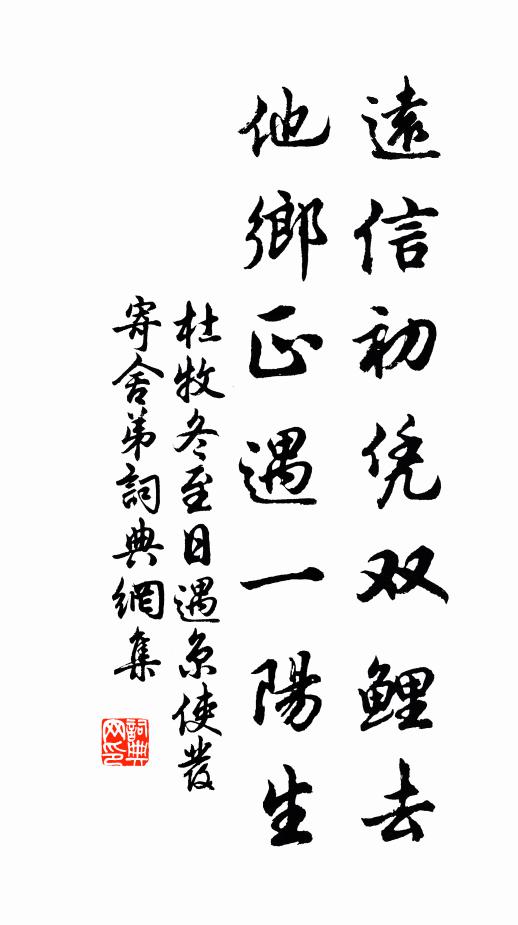 遠信初凭双鲤去
他鄉正遇一陽生
杜牧冬至日遇京使發
寄舍弟詞典網集
詞典網印